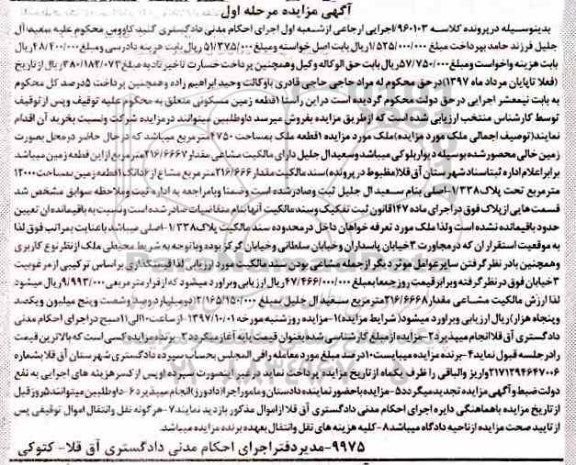 آگهی مزایده مرحله اول
بدینوسیله در پرونده کلاسه ۹۶۰۱۰۳/اجرایی ارجاعی از شعبه اول اجرای احکام مدنی دادگستری گنبد کاووس محکوم علیه سعید آل
جلیل فرزند حامد بپرداخت مبلغ ۱/۵۲۵/۰۰۰/۰۰۰ریال بابت اصل خواسته ومبلغ ۵۱/۳۷۵/۰۰۰ریال بابت هزینه دادرسی ومبلغ ۴۸/۴۰۰/۰۰۰ریال
بابت هزینه واخواست ومبلغ ۵۷/۷۵۰/۰۰۰ریال بابت حق الوکاله وکیل وهمچنین پرداخت خسارت تاخیر تادیه مبلغ ۳۸۰/۱۸۲/۰۷۳ ریال از تاریخ
(فعلا تاپایان مرداد ماه ۱۳۹۷)در حق محکوم له مراد حاجی حاجی قادری باوکالت وحید ابراهیم زاده وهمچنین پرداخت ۵درصد کل محکوم
به بابت نیمعشر اجرایی در حق دولت محکوم گردیده است در این راستا ۱قطعه زمین مسکونی متعلق به محکوم علیه توقیف وپس از توقیف
توسط کارشناس منتخب ارزیابی شده است که از طریق مزایده بفروش میرسد داوطلبین میتوانند در مزایده شرکت ونسبت بخرید آن اقدام
نمایند(توصیف اجمالی ملک مورد مزایده)ملک مورد مزایده ۱قطعه ملک بمساحت ۴۷۵۰مترمربع میباشد که در حال حاضر در محل بصورت
زمین خالی محصور شده بوسیله دیوار بلوکی میباشد وسعید آل جلیل دارای مالکیت مشاعی مقدار ۲۱۶/۶۶۶۷مترمربع از این قطعه زمین میباشد
برابر اعلام اداره ثبت اسناد شهرستان آق قلا(مظبوط در پرونده)سند مالکیت مقدار ۲۱۶/۶۶۶ مترمربع مشاع از ۶دانگ ۱قطعه زمین بمساحت ۱۲۰۰۰
مترمربع تحت پلاک ۱/۳۳۸-اصلی بنام سعید آل جلیل ثبت وصادر شده است وضمنا وبا مراجعه به اداره ثبت وملاحظه سوابق مشخص شد
قسمت هایی از پلاک فوق در اجرای ماده ۱۴۷قانون ثبت تفکیک وسند مالکیت آنها بنام متقاضیات صادر شده است ونسبت به باقیمانده آن تعیین
حدود باقیمانده نشده است ولذا ملک مورد تعرفه خواهان داخل در محدوده سند مالکیت پلاک ۱/۳۳۸-اصلی میباشد باعنایت بمراتب فوق لذا
به موقعیت استقرار آن که در مجاورت ۳خیابان پاسداران وخیابان سلطانی وخیابان گرکز بوده وبا توجه به شرایط محیطی ملک از نظر نوع کاربری
وهمچنین بادر نظر گرفتن سایر عوامل موثر دیگر از جمله مشاعی بودن سند مالکیت مورد ارزیابی لذا قیمتگذاری بر اساس ترکیبی از مرغوبیت
۳خیابان فوق در نظر گرفته وبرابر قیمت روز جمعا بمبلغ ۴۷/۴۶۶/۰۰۰/۰۰۰ریال ارزیابی وبراورد میشود که از قرار متر مربعی ۹/۹۹۳/۰۰۰ریال میشود
لذا ارزش مالکیت مشاعی مقدار ۲۱۶/۶۶۶۸مترمربع سعید آل جلیل بمبلغ ۲/۱۶۵/۱۵۰/۰۰۰(دو میلیارد وصد وشصت وپنج میلیون ویکصد
وپنجاه هزار)ریال ارزیابی وبراورد میشود(شرایط مزایده)۱-مزایده روز شنبه مورخه ۱۳۹۷/۱۰/۰۱-از ساعت ۱۰الی ۱۱صبح در اجرای احکام مدنی
دادگستری آق قلا انجام میپذیرد ۲-مزایده از مبلغ کارشناسی شده بعنوان قیمت پایه آغاز میگردد ۳-برنده مزایده کسی است که بالاترین قیمت
را در جلسه قبول نماید ۴-برنده مزایده میبایست ۱۰درصد مبلغ مورد معامله را فی المجلس بحساب سپرده دادگستری شهرستان آق قلا بشماره
۲۱۷۱۲۹۴۶۴۷۰۰۶واریز والباقی را ظرف یکماه از تاریخ مزایده پرداخت نماید در غیر اینصورت سپرده او پس از کسر هزینه های اجرایی به نفع
دولت ضبط و آگهی مزایده تجدید میگردد ۵-مزایده با حضور نماینده دادستان و مامور اجرا(دادورز)انجام میپذیرد ۶-داوطلبین میتوانند ۵روز قبل
از تاریخ مزایده با هماهنگی دایره اجرای احکام مدنی دادگستری آق قلا از اموال مذکور بازدید نمایند ۷-هرگونه نقل وانتقال اموال توقیفی پس
از تایید صحت مزایده از ناحیه دادگاه میباشد ۸-کلیه هزینه های نقل وانتقال بعهده برنده مزایده میباشد.
۹۹۷۵-مدیر دفتر اجرای احکام مدنی دادگستری آق قلا- کتوکی